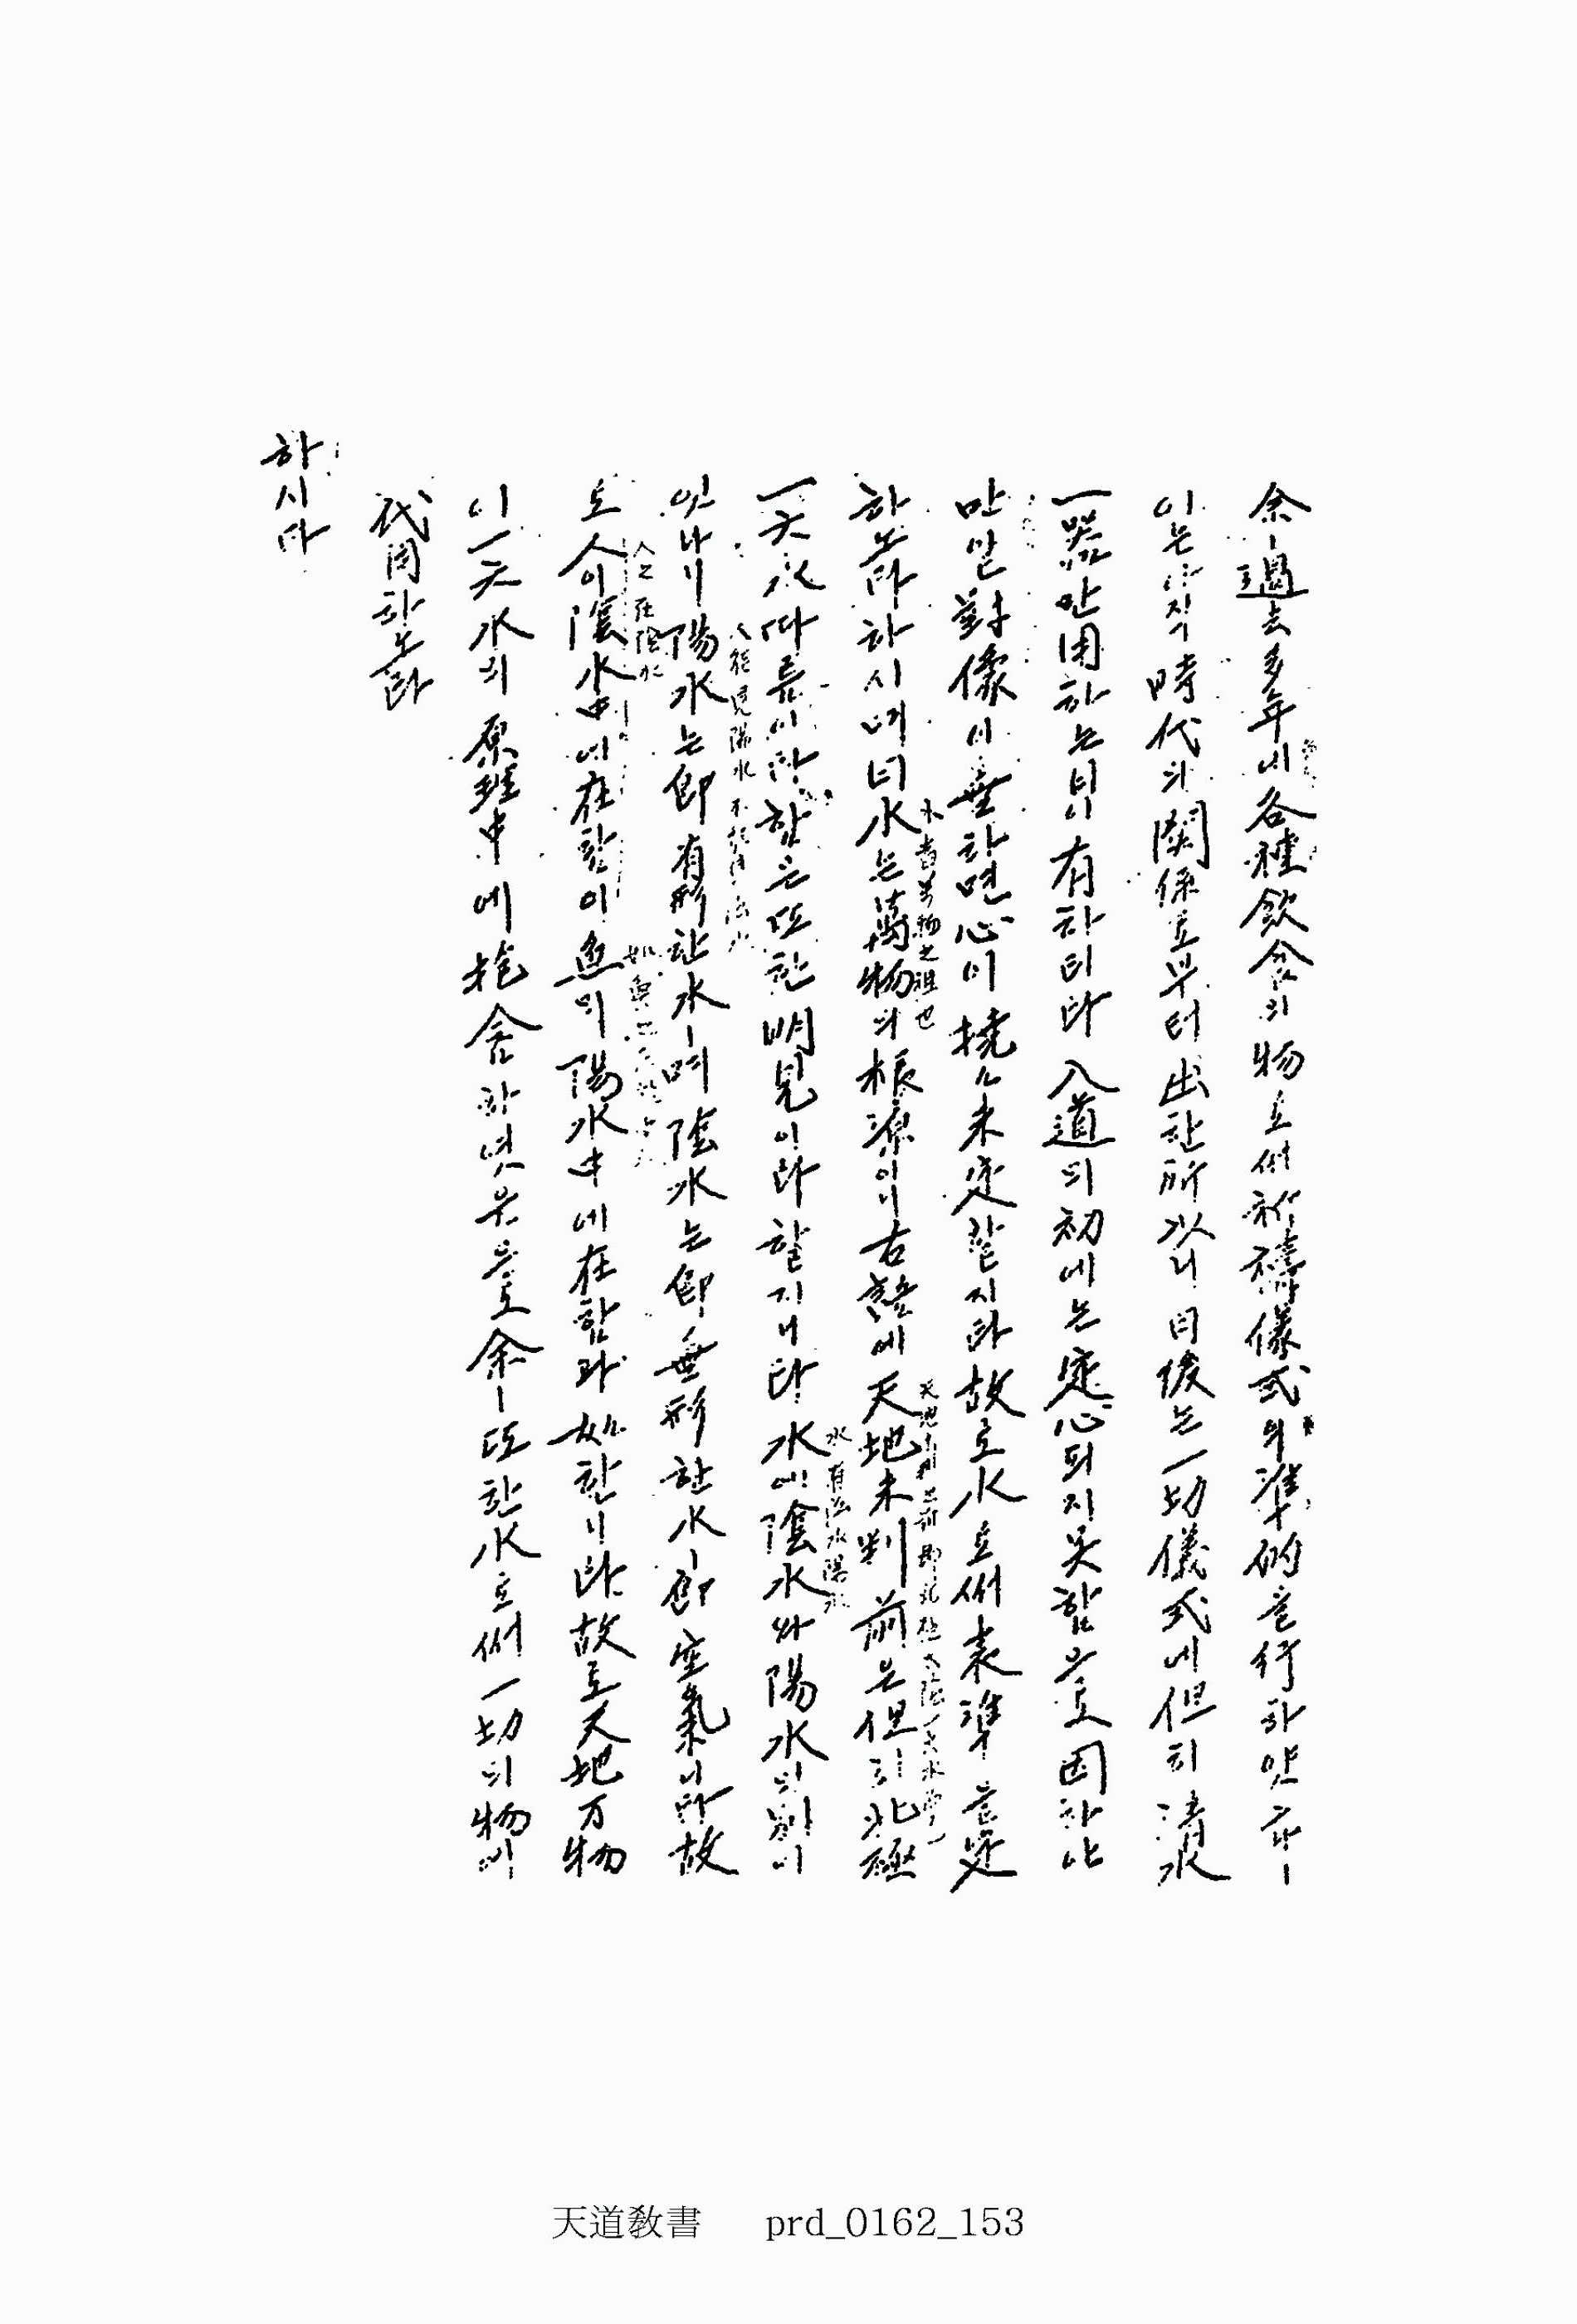 余ㅣ過去多年에各種飮食의物로써祈禱儀式의準的을行하얏구나ㅣ
이는아직時代의關係로부터出한所以니日後는一切儀式에但히淸水
一器만用하는日이有하리라入道의初에는定心되지못함으로因하야
만일對像이無하면心이撓々未定할지라故로水로써表準을定
하노라하시며曰水는萬物의根源이니右說에天地未判前은但히北極
水者萬物之祖也
一天水따름이라함은또한明見이라할지니라水에陰水와陽水의別이
水有陰水陽水
잇나니陽水는卽有形한水ㅣ며陰水는卽無形한水ㅣ卽空氣니라故
人能見陽水不能見陰水
로人이陰水中에在함이魚의陽水中에在함과如하니라故로天地万物
人之在陰水
이一天水의原理中에包含하엿슴으로余ㅣ또한水로써一切의物에
代用하노라
하시다
天道敎書 prd_0162_153